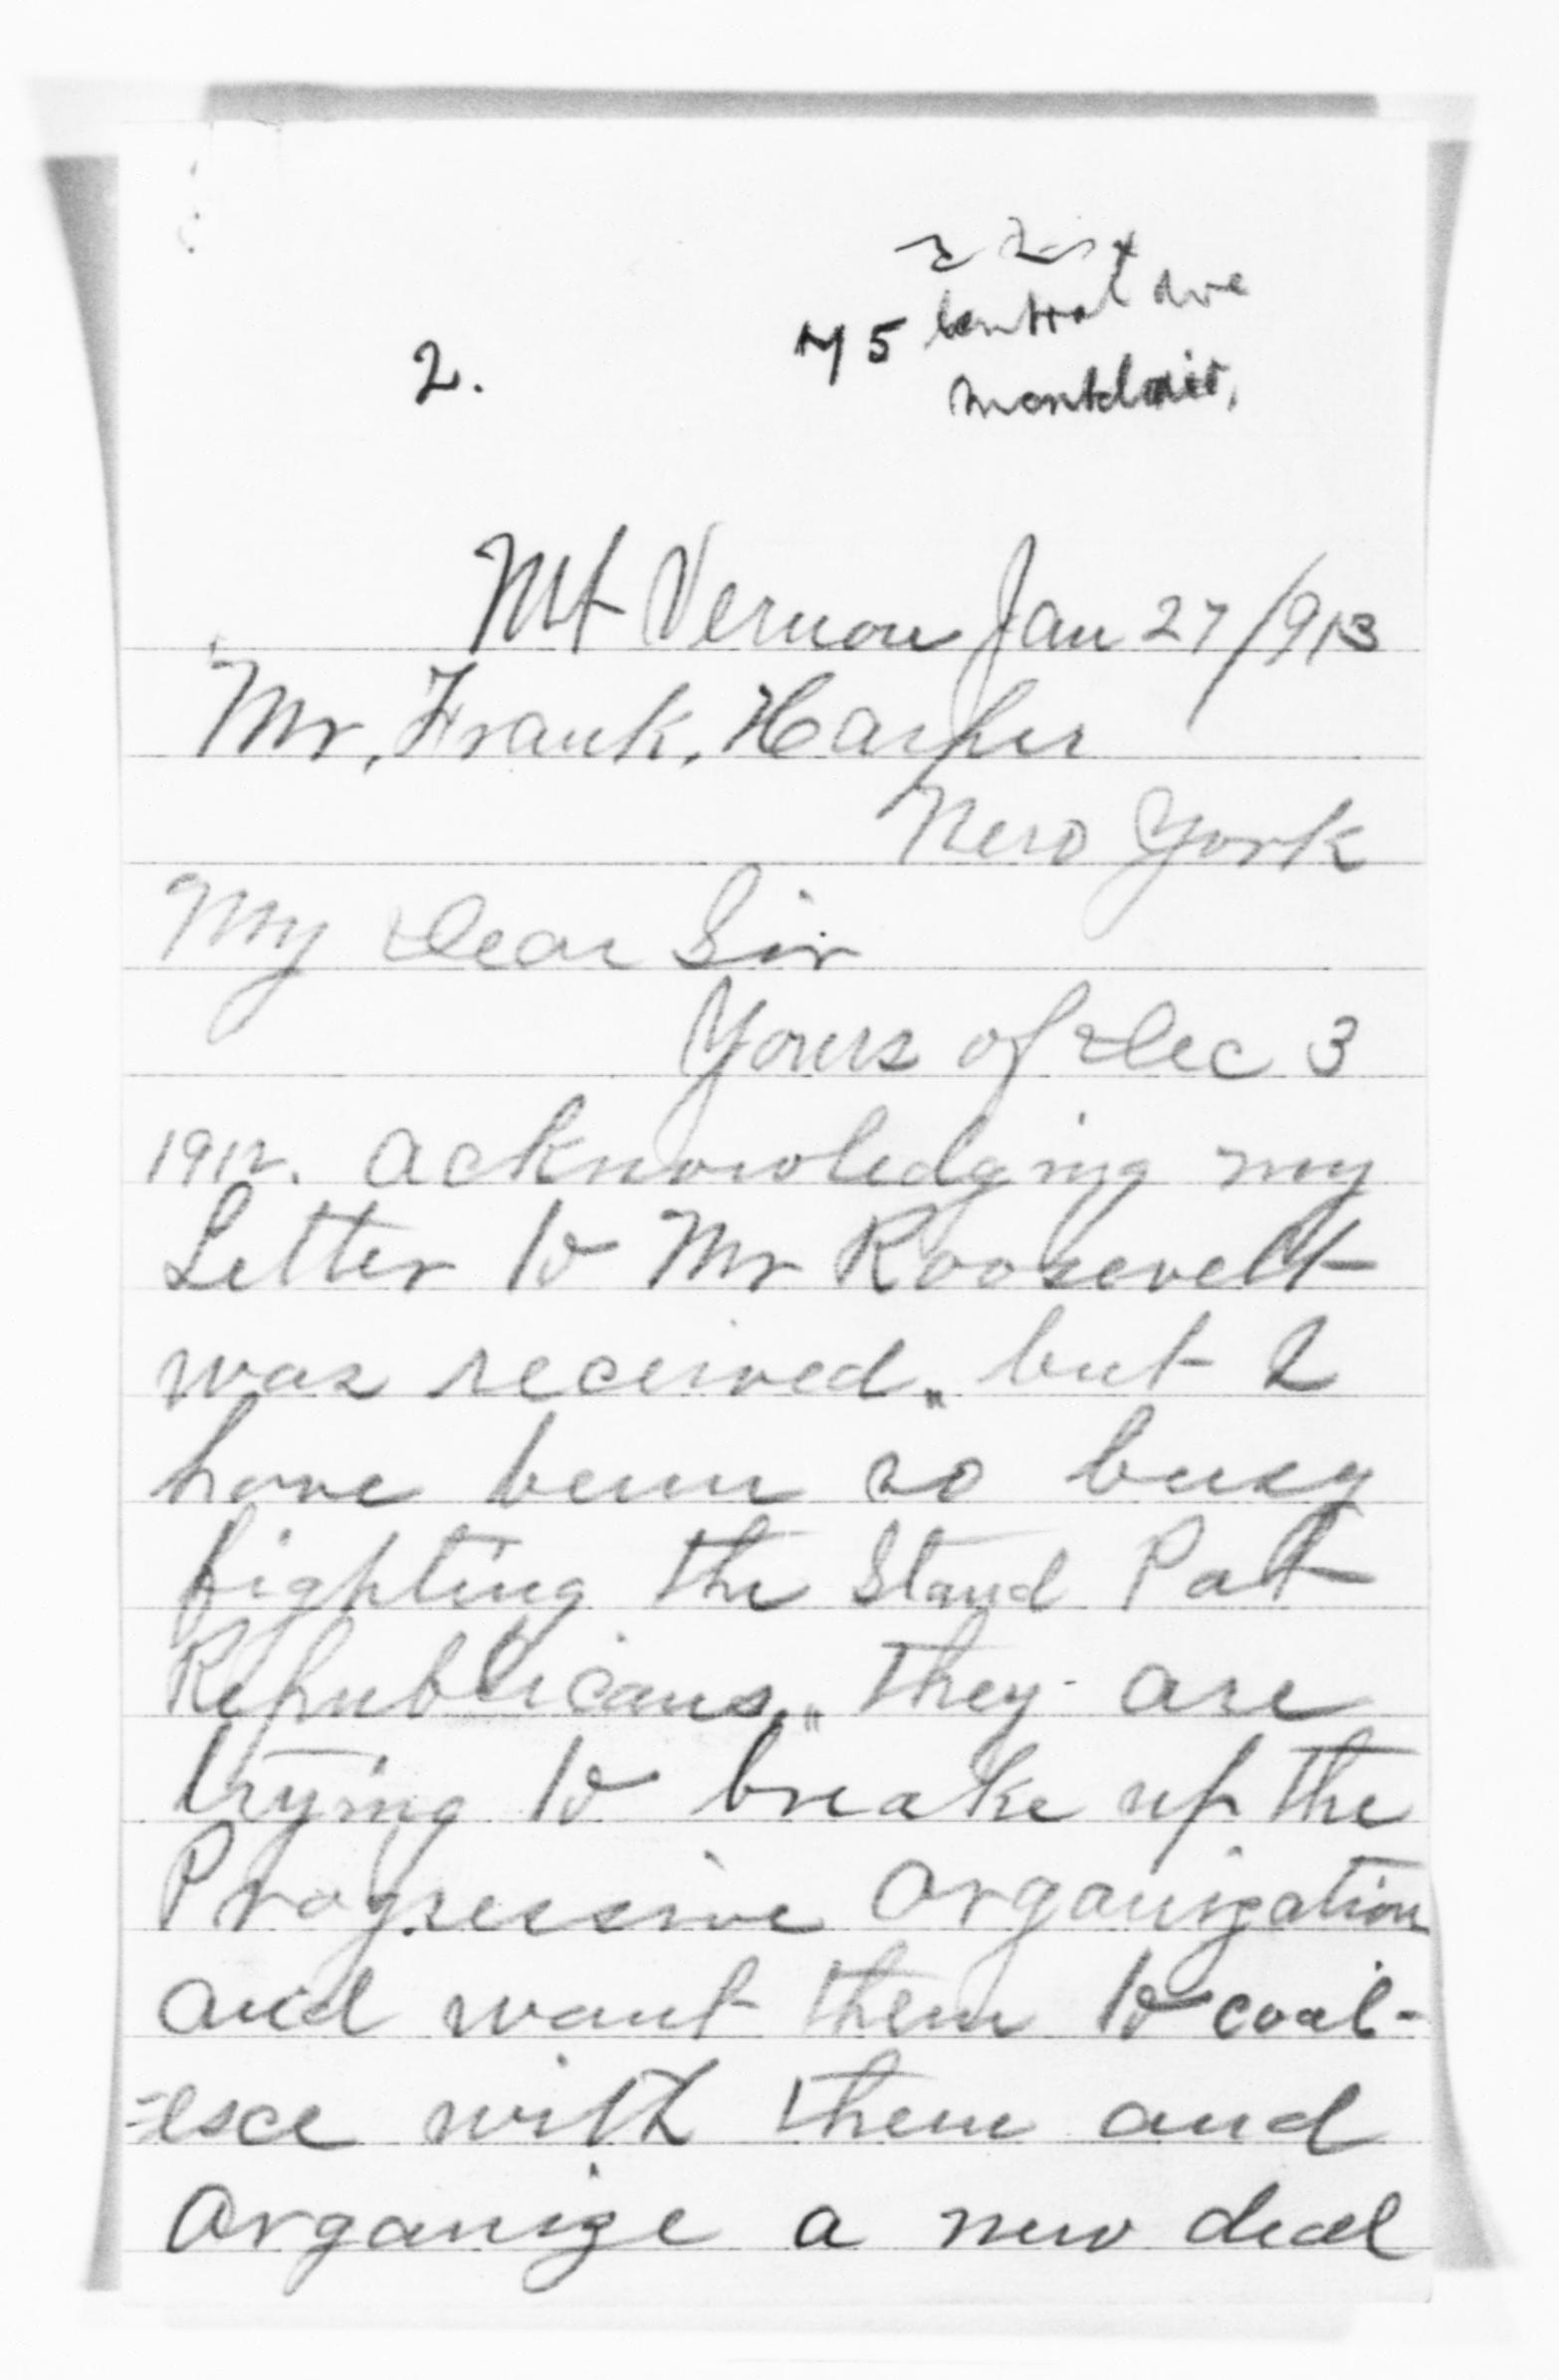 2.
75 Central Ave
Montclair,
Mt Vernon Jan 27/913
Mr, Frank, Harper
New York
My Dear Sir
Yours of Dec 3
1912. acknowledging my
Letter to Mr Roosevelt
was received,, but I
have been so busy
fighting the Stand Pat
Republicans,,, they are
trying to breake up the
Progressive Organization
and want them to coal-
=esce with them and
Organize a new deal